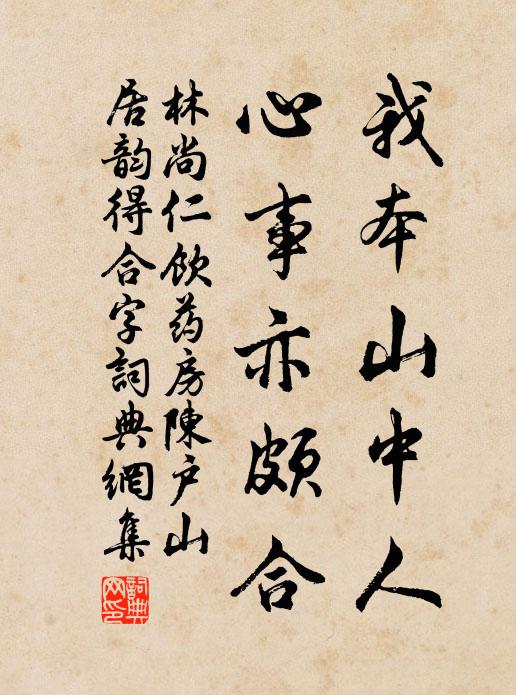 我本山中人
心事亦頗合
林尚仁飲药房陳户山
居韵得合字詞典網集
詞典網印